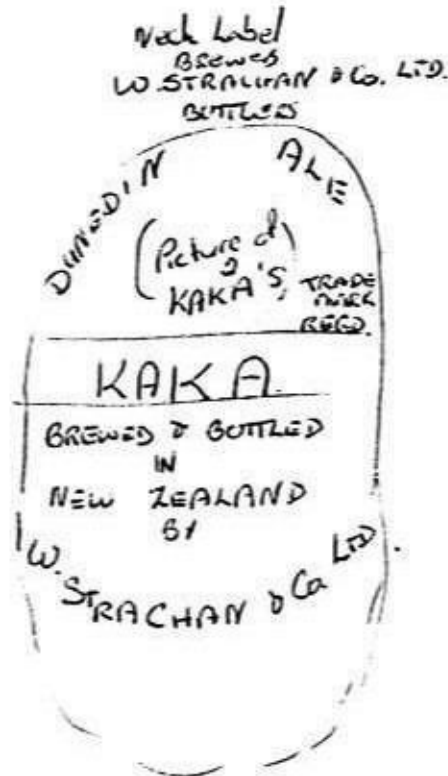 Neck Label
BREWED
W. STRACHAN & Co. LTD.
BOTTLED
DUNEDIN ALE
(Picture of
2
KAKA'S)
TRADE
MARK
REGD.
KAKA
BREWED & BOTTLED
IN
NEW ZEALAND
BY
W. STRACHAN & Co LTD.